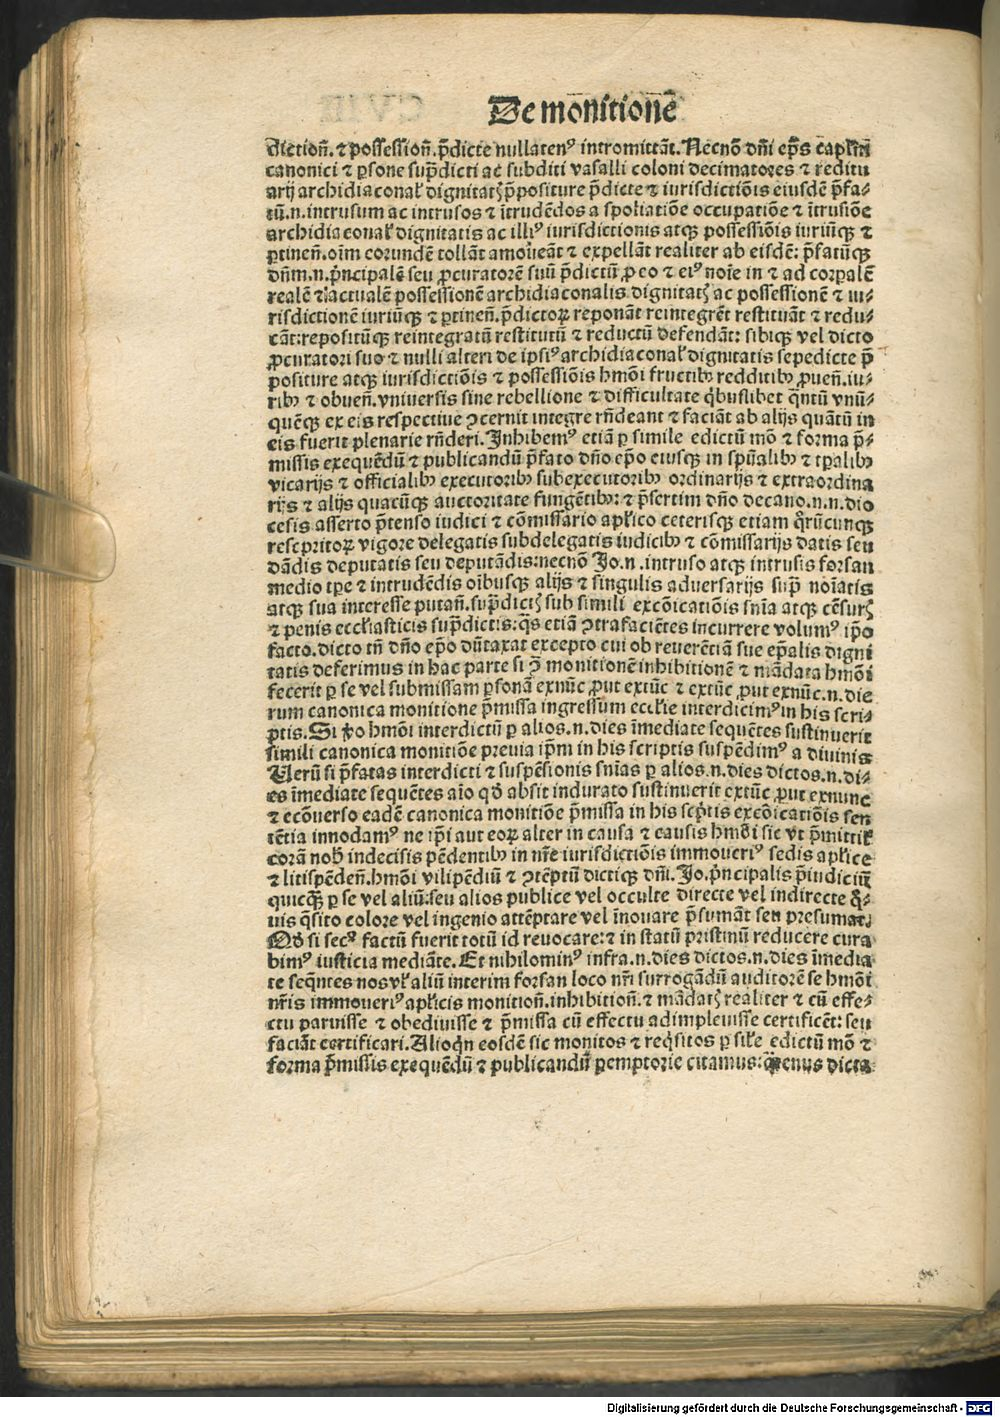 De mōnitionē
dictioñ. ⁊ possessioñ. p̄dicte nullatenꝰ intromittāt. Necnō dñi ep̄s capl̄m
canonici ⁊ ꝑsone sup̄dicti ac subditi vasalli coloni decimatores ⁊ reditu
arij archidiaconał dignitatꝭ p̄positure p̄dicte ⁊ iurisdictiōis eiusdē p̄fa-
tū.n. intrusum ac intrusos ⁊ ītrudēdos a spoliatiōe occupatiōe ⁊ ītrusiōe
archidiaconał dignitatis ac illiꝰ iurisdictionis atqꝫ possessiōis iuriūqꝫ ⁊
ꝑtineñ. oīm eorundē tollāt amoueāt ⁊ expellāt realiter ab eisdē: p̄fatūqꝫ
dñm.n. p̄ncipalē seu ꝓcuratorē suū p̄dictū ꝓ eo ⁊ eiꝰ noīe in ⁊ ad corpalē
realē ⁊ actualē possessionē archidiaconalis dignitatꝭ ac possessionē ⁊ iu-
risdictionē iuriūqꝫ ⁊ ꝑtineñ. p̄dictoꝝ reponāt reintegrēt restituāt ⁊ redu-
cāt: repositūqꝫ reintegratū restitutū ⁊ reductū defendāt: sibiqꝫ vel dicto
ꝓcuratori suo ⁊ nulli alteri de ipsiꝰ archidiaconał dignitatis sepedicte p̄
positure atqꝫ iurisdictiōis ⁊ possessiōis hmōi fructibꝫ redditibꝫ ꝓueñ. iu-
ribꝫ ⁊ obueñ. vniuersis sine rebellione ⁊ difficultate q̄buslibet q̄ntū vnū-
quēqꝫ ex eis respectiue ꝯcernit integre rñdeant ⁊ faciāt ab alijs quātū in
eis fuerit plenarie rñderi. Inhibemꝰ etiā ꝑ simile edictū mō ⁊ forma p̄-
missis exequēdū ⁊ publicandū p̄fato dño ep̄o eiusqꝫ in spūalibꝫ ⁊ tꝑalibꝫ
vicarijs ⁊ officialibꝫ executoribꝫ subexecutoribꝫ ordinarijs ⁊ extraordina
rijs ⁊ alijs quacūqꝫ auctoritate fungētibꝫ: ⁊ p̄sertim dño decano.n.n. dio
cesis asserto p̄tenso iudici ⁊ cōmissario apl̄ico ceterisqꝫ etiam q̄rūcunqꝫ
rescpritoꝝ vigore delegatis subdelegatis iudicibꝫ ⁊ cōmissarijs datis seu
dādis deputatis seu deputādis: necnō Jo.n. intruso atqꝫ intrusis forsan
medio tꝑe ⁊ intrudēdis oībusqꝫ alijs ⁊ singulis aduersarijs sup̄ noīatis
atqꝫ sua interesse putañ. sup̄dictꝭ sub simili excōicatiōis snīa atqꝫ cēsurꝭ
⁊ penis eccłiasticis sup̄dictis: q̄s etiā ꝯtrafaciētes incurrere volumꝰ ip̄o
facto. dicto tñ dño ep̄o dūtaxat excepto cui ob reuerētiā sue ep̄alis digni
tatis deferimus in hac parte si ꝯ̄ monitionē inhibitionē ⁊ mādata hmōi
fecerit ꝑ se vel submissam ꝑsonā exnūc ꝓut extūc ⁊ extūc ꝓut exnūc.n. die
rum canonica monitione p̄missa ingressum eccłie interdicimꝰ in his scri-
ptis. Si ꝟo hmōi interdictū ꝑ alios.n. dies īmediate sequētes sustinuerit
simili canonica monitiōe preuia ip̄m in his scriptis suspēdimꝰ a diuinis
Uerū si p̄fatas interdicti ⁊ suspēsionis snīas ꝑ alios.n. dies dictos.n. di-
es īmediate sequētes aīo qð absit indurato sustinuerit extūc ꝓut exnunc
⁊ ecōuerso eadē canonica monitiōe p̄missa in his scp̄tis excōicatiōis sen
tētia innodamꝰ ne ip̄i aut eoꝝ alter in causa ⁊ causis hmōi sic vt p̄mittił
corā nob̄ indecisis pēdentibꝫ in nr̄e iurisdictiōis immoueriꝰ sedis apl̄ice
⁊ litispēdeñ. hmōi vilipēdiū ⁊ ꝯtēptū dictiqꝫ dñi. Jo. p̄ncipalis p̄iudiciū
quicq̄ꝫ ꝑ se vel aliū: seu alios publice vel occulte directe vel indirecte q̄-
uis q̄sito colore vel ingenio attēptare vel īnouare p̄sumāt seu presumat.
Qð si secꝰ factū fuerit totū id reuocare: ⁊ in statū pristinū reducere cura
bimꝰ iusticia mediāte. Et nihilominꝰ infra.n. dies dictos.n. dies īmedia
te seq̄ntes nos vł aliū interim forsan loco nr̄i surrogādū auditorē se hmōi
nr̄is immoueriꝰ apl̄icis monitioñ. inhibitioñ. ⁊ mādatꝭ realiter ⁊ cū effe-
ctu paruisse ⁊ obediuisse ⁊ p̄missa cū effectu adimpleuisse certificēt: seu
faciāt certificari. Alioq̄n eosdē sic monitos ⁊ req̄sitos ꝑ siłe edictū mō ⁊
forma p̄missis exequēdū ⁊ publicandū ꝑemptorie citamus: q̄tenus dicta
Digitalisierung gefördert durch die Deutsche Forschungsgemeinschaft - DFG